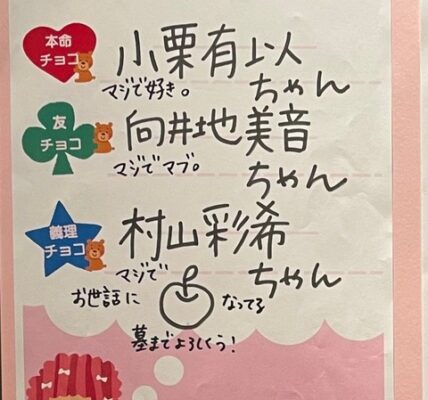 本命
チョコ
小栗有以
ちゃん
マジで好き。
友
チョコ
向井地美音
ちゃん
マジでマブ。
義理
チョコ
村山彩希
ちゃん
マジで
お世話に
なってる
墓までよろしくぅ!